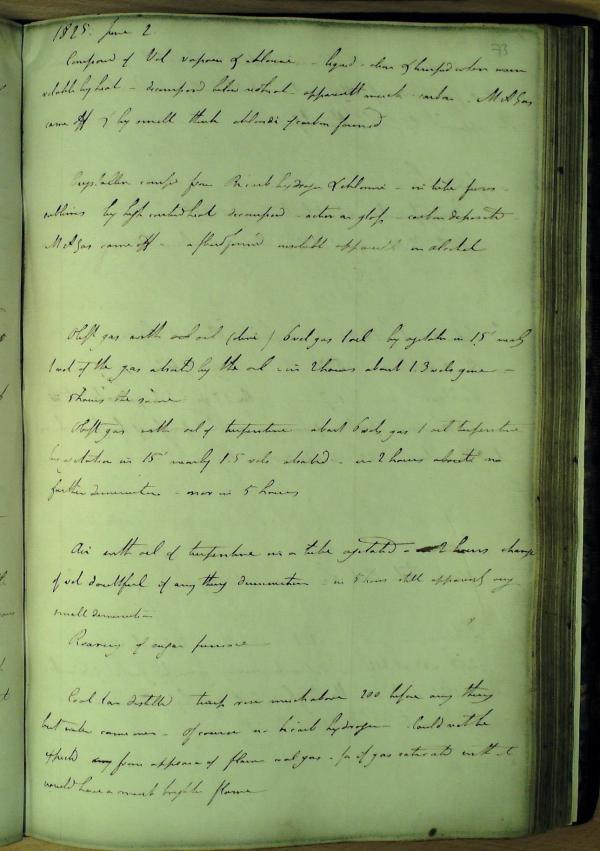 1825. June 2.
73
Compound of Vol vapour & chlorine - liquid - clear & limpid when warm
volatile by heat - decomposed below red heat apparatly much carbon. M A Gas
came off & by small think chloride of carbon formed
Crystalline comp from Bicarb hydrogen & chlorine - in tube fuses -
sublimes by high heat decomposed - action on glass - carbon deposited
M A Gas came off - a fluid formed insoluble apparently in alcohol
Oleft gas with oil (olive) 6 vol gas 1 oil by agitation in 15' nearly
1 vol of the gas absorbed by the oil - in 2 hours about 1.3 vols gone -
in 5 hours the same
Oleft gas with oil of turpentine about 6 vols gas 1 oil turpentine
by agitation in 15' nearly 1.5 vols absorbed - in 2 hours about no
further diminution - nor in 5 hours
Air with oil of turpentine in a tube agitated - 2 hours change
of vol doubtful if any thing diminution - in 5 hours still apparently very
small diminution
Roaring of sugar furnace
Coal tar distilled temp rose much above 200 before any thing
but water came over - of course no bicarb hydrogen - Could not be
expected from appearance of flame coal gas - for if gas saturated with it
would have a much brighter flame